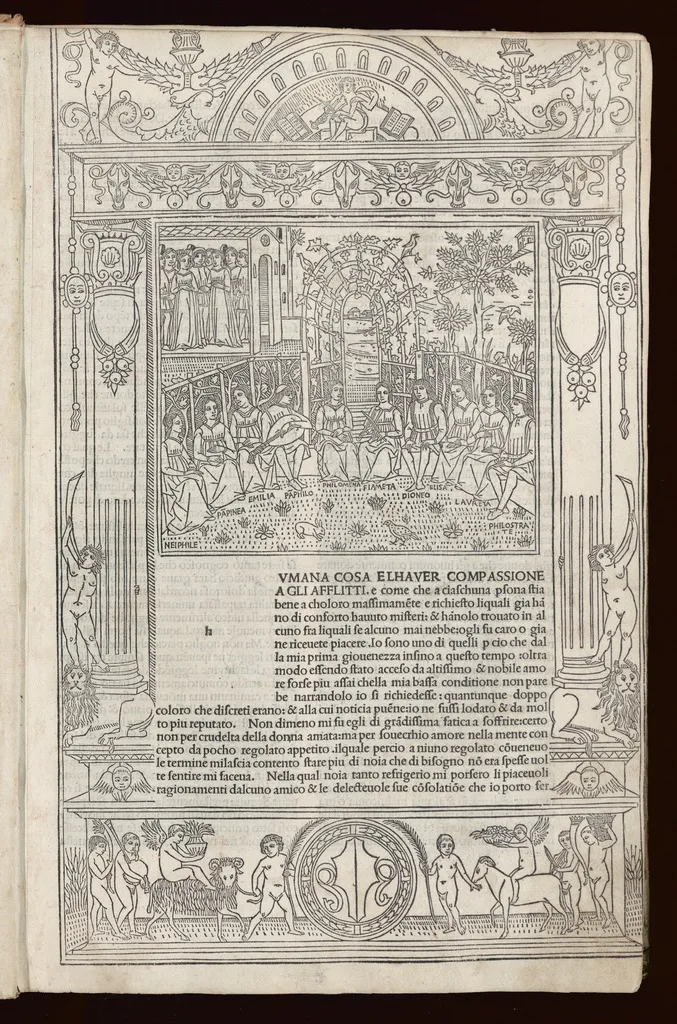 NEIPHILE
PĀPINEA
EMILIA
PĀPHILO
PHILOMENA
FIAMETA
DIONEO
ELISA
LAVRETA
PHILOSTRA
TE
h
VMANA COSA ELHAVER COMPASSIONE
A GLI AFFLITTI. e come che a ciaſchuna pſona ſtia
bene a choloro maſſimamēte e richieſto liquali gia hā
no di conforto hauuto miſteri: & hānolo trouato in al
cuno fra liquali ſe alcuno mai nebbe: ogli fu caro o gia
ne riceuete piacere. Io ſono uno di quelli p cio che dal
la mia prima giouenezza inſino a queſto tempo oltra
modo eſſendo ſtato acceſo da altiſſimo & nobile amo
re forſe piu aſſai chella mia baſſa conditione non pare
be narrandolo io ſi richiedeſſe: quantunque doppo
coloro che diſcreti erano: & alla cui noticia puēne: io ne fuſſi lodato & da mol
to piu reputato. Non dimeno mi fu egli di grādiſſima fatica a ſoffrire: certo
non per crudelta della donna amata: ma per ſouerchio amore nella mente con
cepto da pocho regolato appetito. ilquale percio a niuno regolato cōueneuo
le termine milaſcia contento ſtare piu di noia che di biſogno nō era ſpeſſe uol
te ſentire mi facena. Nella qual noia tanto refrigerio mi porſero li piaceuoli
ragionamenti dalcuno amico & le delecteuole ſue cōſolatiōe che io porto fer